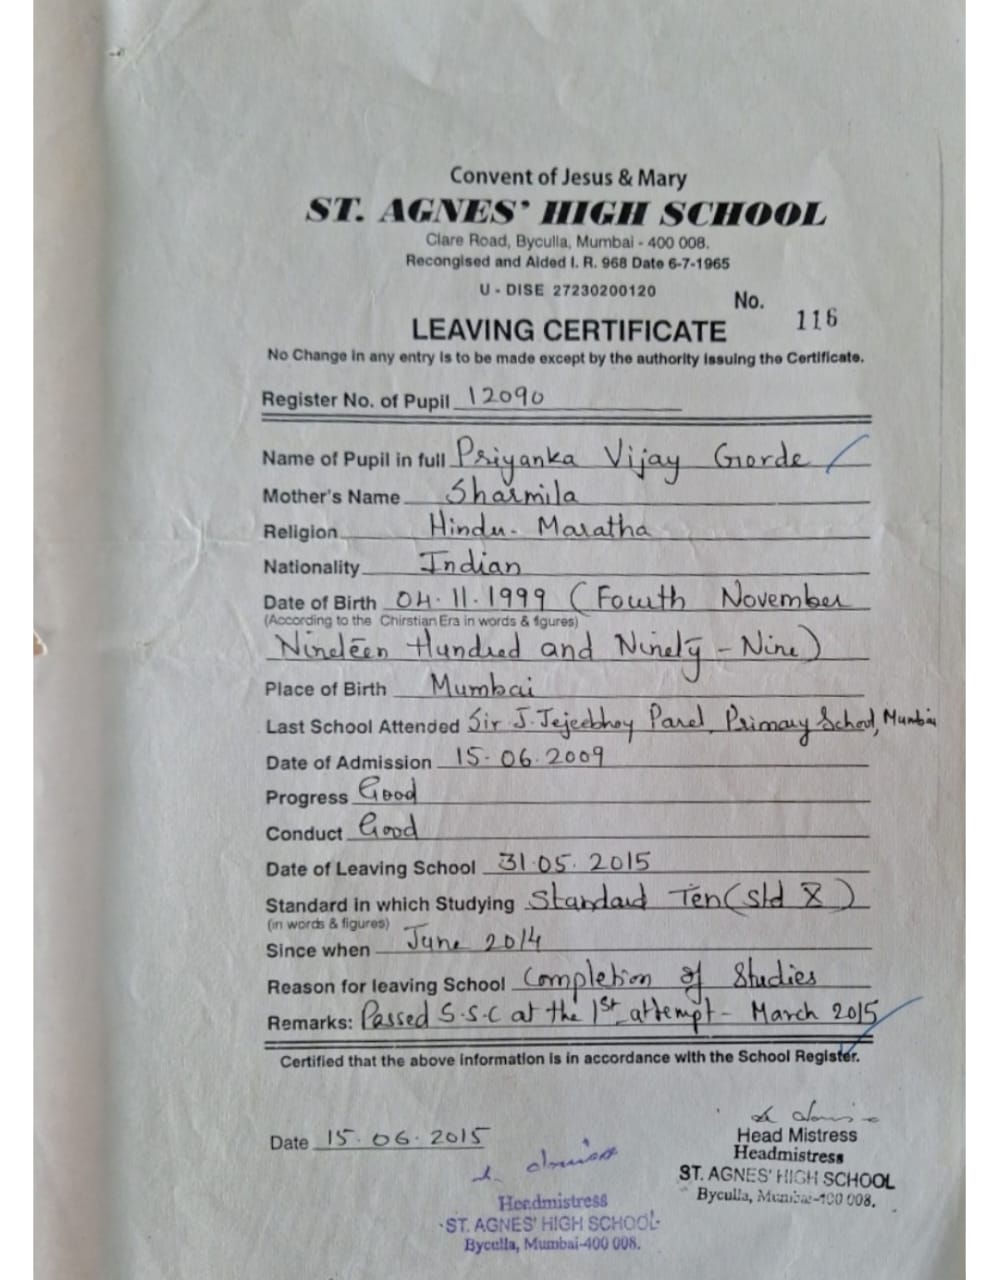 Convent of Jesus & Mary
ST. AGNES' HIGH SCHOOL
Clare Road, Byculla, Mumbai - 400 008.
Recongised and Aided I. R. 968 Date 6-7-1965
U - DISE 27230200120
No. 116
LEAVING CERTIFICATE
No Change in any entry is to be made except by the authority issuing the Certificate.
Register No. of Pupil 12090
Name of Pupil in full Priyanka Vijay Gorde
Mother's Name Sharmila
Religion Hindu - Maratha
Nationality Indian
Date of Birth 04.11.1999 (Fourth November
(According to the Chirstian Era in words & figures)
Nineteen Hundred and Ninety - Nine)
Place of Birth Mumbai
Last School Attended Sir J. Jejeebhoy Parel Primary School, Mumbai
Date of Admission 15.06.2009
Progress Good
Conduct Good
Date of Leaving School 31.05.2015
Standard in which Studying Standard Ten (Std X)
(in words & figures)
Since when June 2014
Reason for leaving School Completion of Studies
Remarks: Passed S.S.C at the 1st attempt - March 2015
Certified that the above information is in accordance with the School Register.
Date 15.06.2015
Head Mistress
Headmistress
ST. AGNES' HIGH SCHOOL
Byculla, Mumbai-400 008.
Headmistress
ST. AGNES' HIGH SCHOOL
Byculla, Mumbai-400 008.